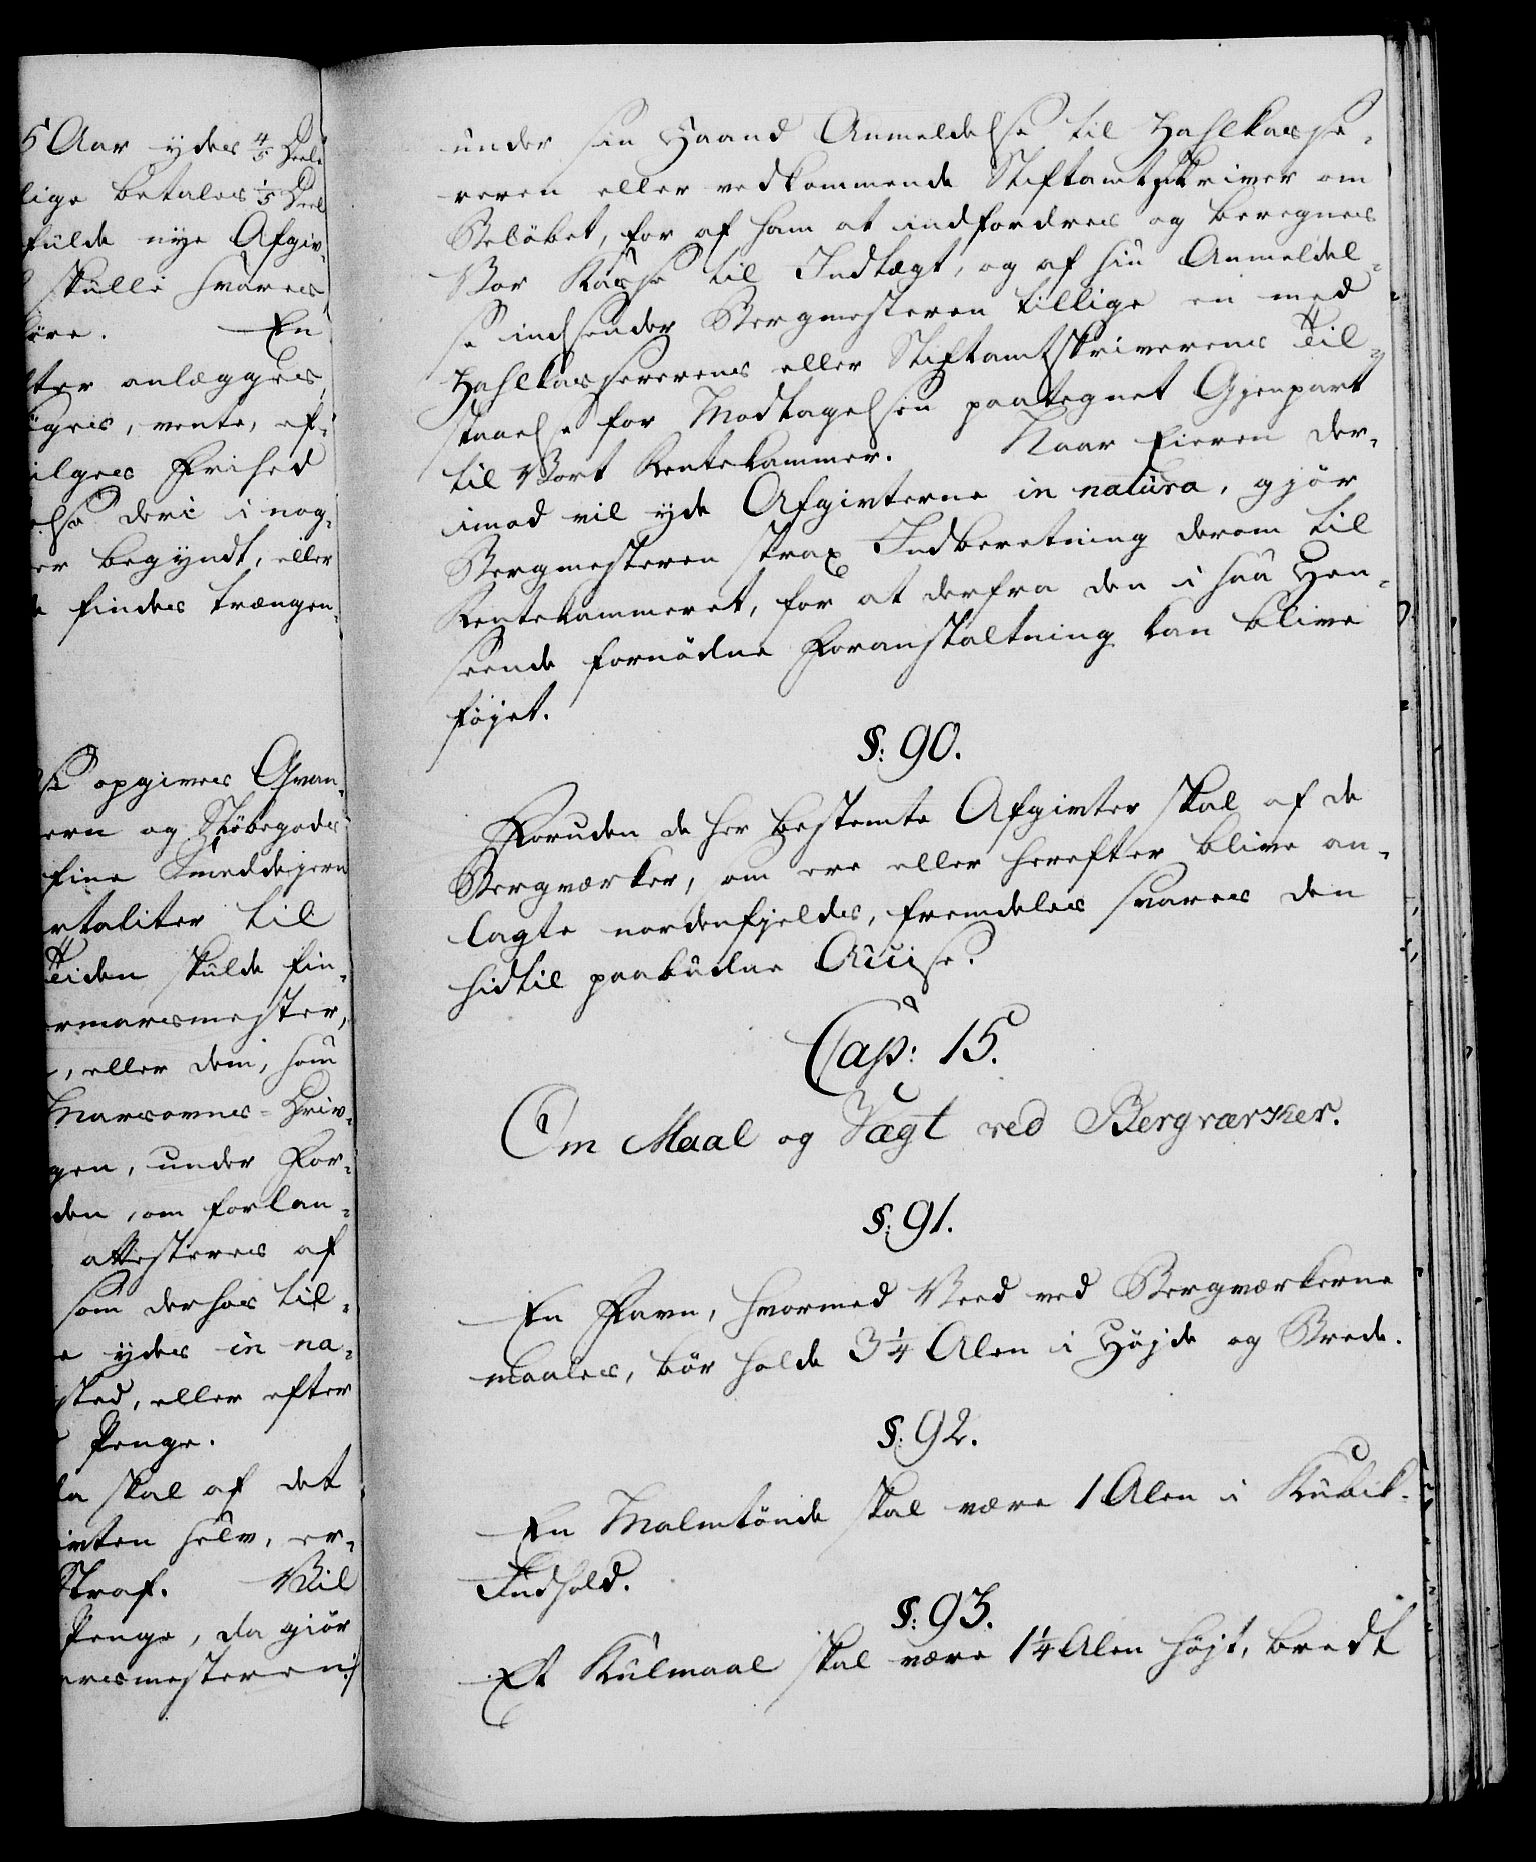 5 Aar ydes 4/5 Deele
lige betales 1/5 Deel
fulde nye Afgiv-
skulle svares
En
ter anlægges,
vente, ef-
ilges Frihed
else deri i nog-
er begyndt, eller
findes trængen-
opgives Qvan-
ern og Støbegods
fine Smeddejern
rtaliter til
Tiden skulde fin-
ermarsmester,
, eller dem, som
Marsovns-Driv-
gen, under For-
den, om forlan-
attesteres af
som derhos til-
e ydes in na-
sted, eller efter
Penge.
da skal af det
ivten selv, er-
Straf. Vil
Penge, da giör
arsmesteren
under sin Haand Anmeldelse til Zahlkasse-
reren eller vedkommende Stiftamtskriver om
Belöbet, for af ham at indfordres og beregnes
Vor Kasse til Indtægt, og af sin Anmeldel-
se indsender Bergmesteren tillige en med
Zahlkassererens eller Stiftamtskriverens Til-
staaelse for Modtagelsen paategnet Gjenpart
til Vort Rentekammer. Naar Eieren der-
imod vil yde Afgivterne in natura, gjör
Bergmesteren strax Indberetning derom til
Rentekammeret, for at derfra den i saa Hen-
seende fornödne Foranstaltning kan blive
föjet.
§: 90.
Foruden de her bestemte Afgivter skal af de
Bergværker, som ere eller herefter blive an-
lagte nordenfjelds, fremdeles svares den
hidtil paabudne Accise.
Cap: 15.
Om Maal og Vægt ved Bergværker.
§: 91.
En Favn, hvormed Veed ved Bergværkerne
maales, bör holde 3 1/4 Alen i Höjde og Brede.
§: 92.
En Malmtönde skal være 1 Alen i Kubik-
Indhold.
§: 93.
Et Kulmaal skal være 1 1/4 Alen höjt, bredt